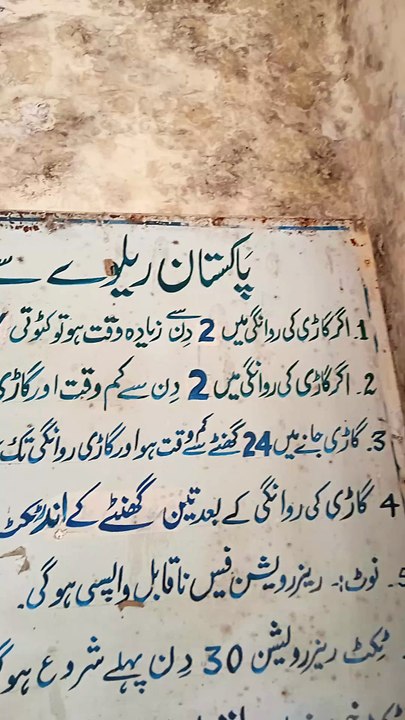 پاکستان ریلوے سے
1. اگر گاڑی کی روانگی میں 2 دن سے زیادہ وقت ہو تو کٹوتی
2. اگر گاڑی کی روانگی میں 2 دن سے کم وقت اور گاڑی
3. گاڑی جانے میں 24 گھنٹے سے کم وقت ہو اور گاڑی روانگی تک
4 گاڑی کی روانگی کے بعد تین گھنٹے کے اندر ٹکٹ
5. نوٹ:۔ ریزرویشن فیس ناقابل واپسی ہوگی۔
ٹکٹ ریزرویشن 30 دن پہلے شروع ہوگی